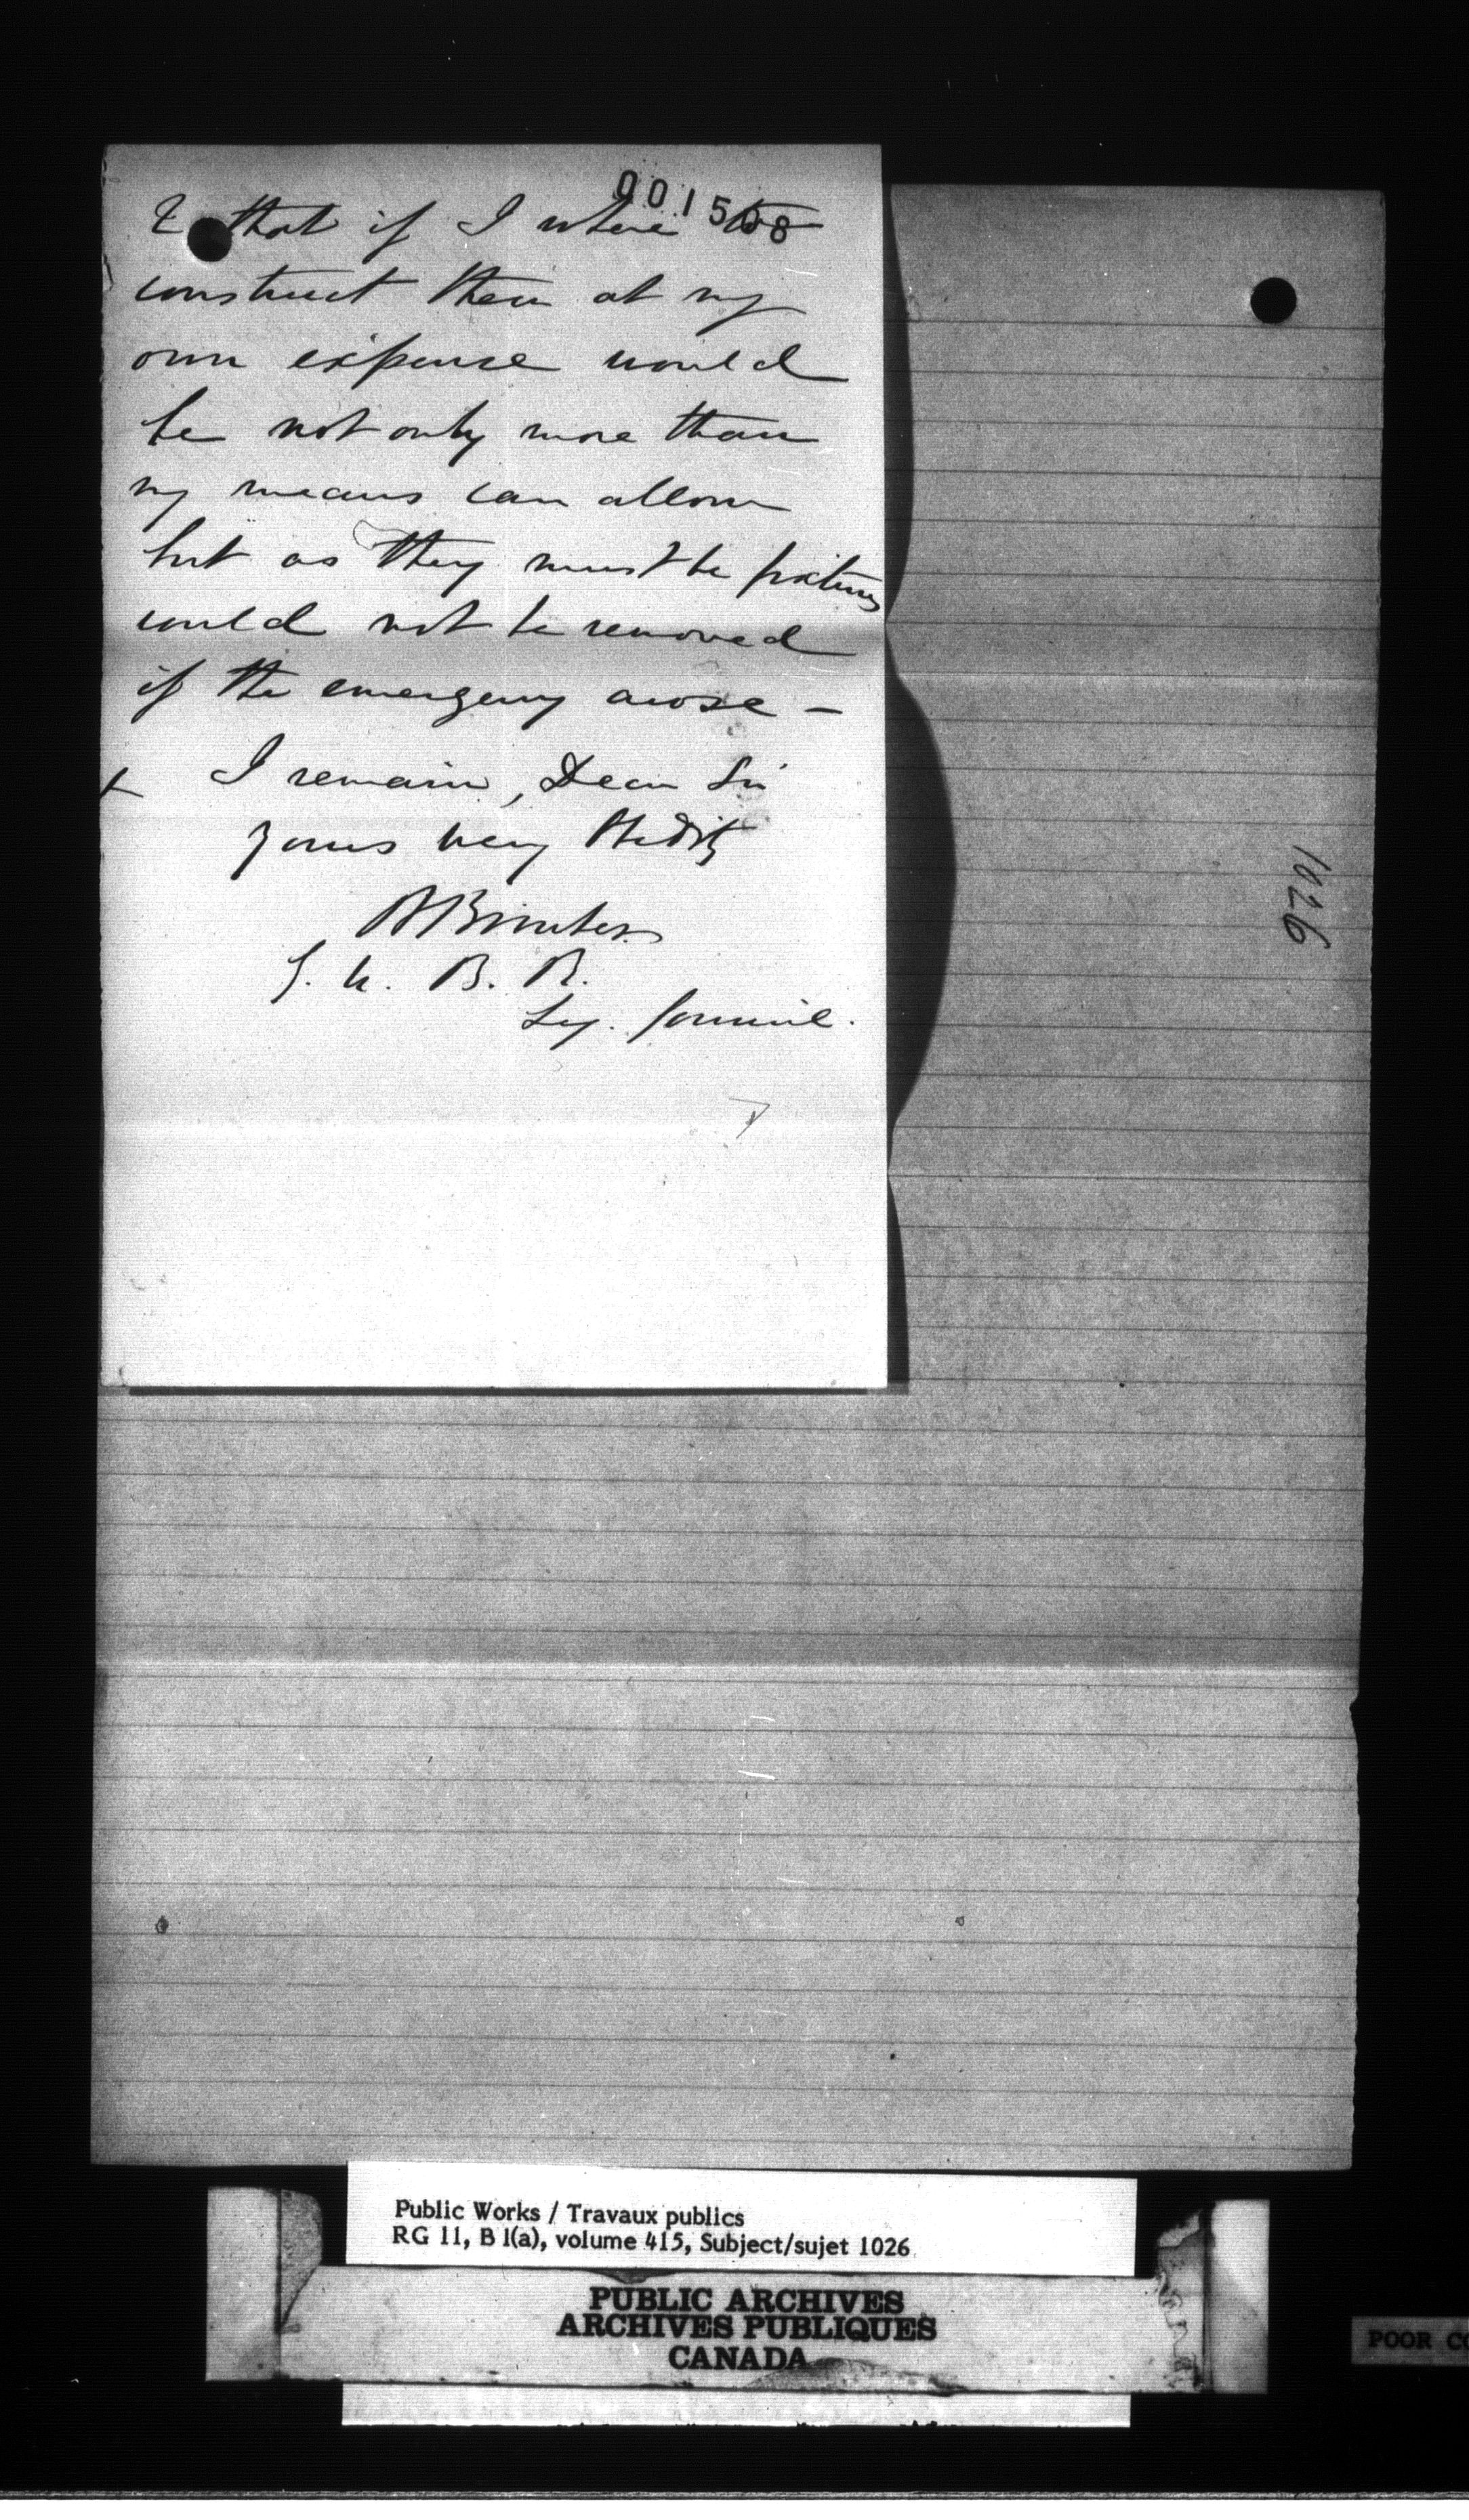 001508
& that if I where to
construct them at my
own expense would
be not only more than
my means can allow
but as they must be fixtures
could not be removed
if the emergency arose –
I remain, Dear Sir
yours very
G. U. B. R.
Leg. Council.
1026
Public Works / Travaux publics
RG 11, B 1(a), volume 415, Subject/sujet 1026
PUBLIC ARCHIVES
ARCHIVES PUBLIQUES
CANADA
POOR CO